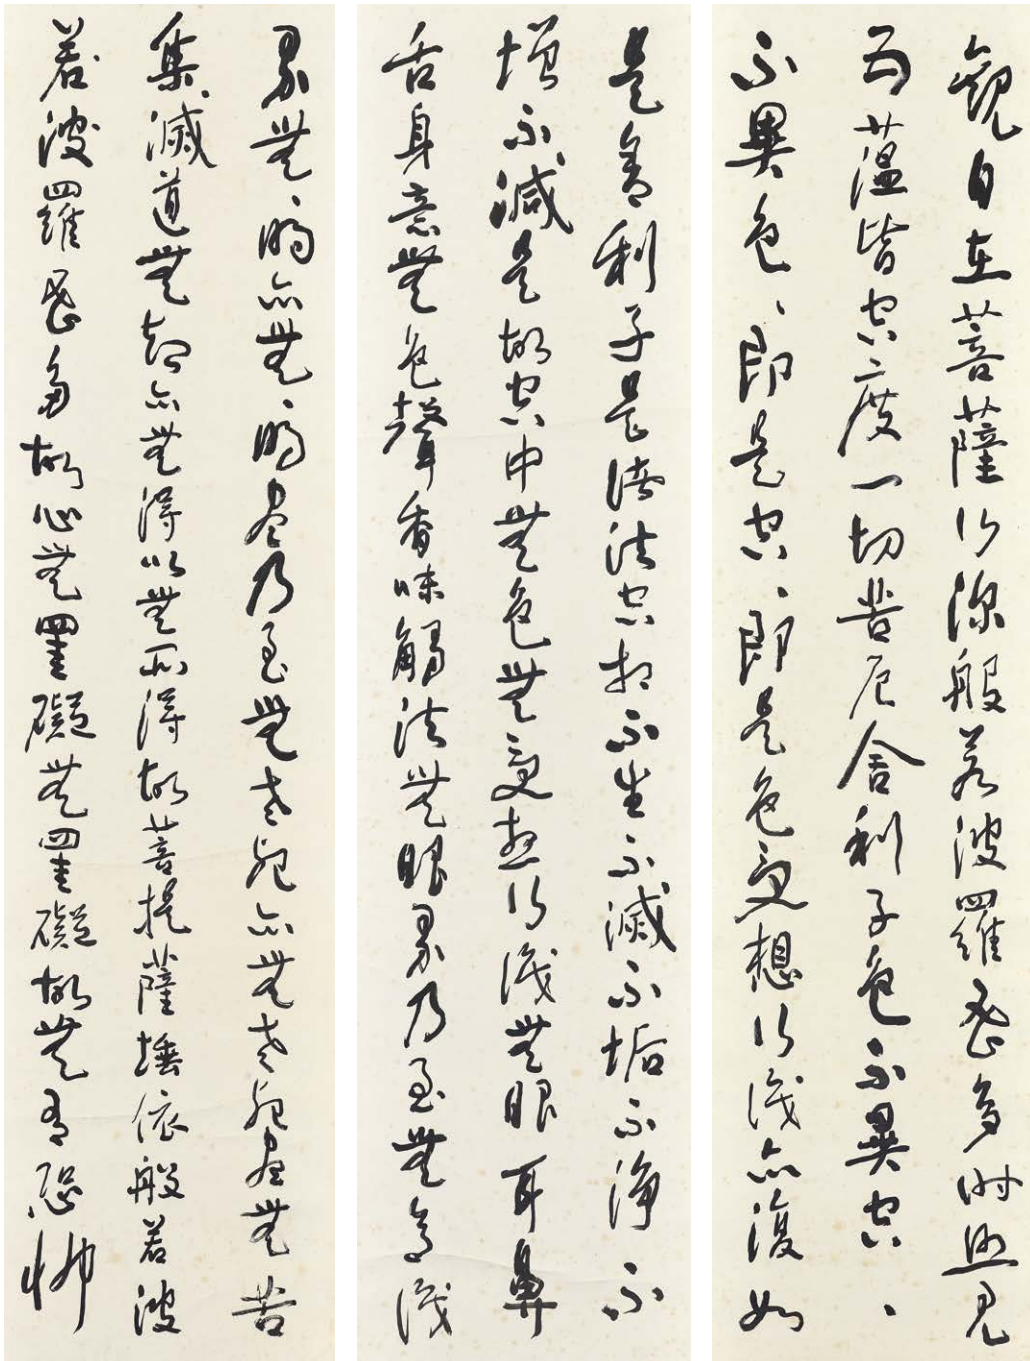 觀自在菩薩行深般若波羅蜜多時照見
五蘊皆空度一切苦厄舍利子色不異空、
不異色、即是空、即是色受想行識亦復如
是舍利子是諸法空相不生不滅不垢不淨不
增不減是故空中無色無受想行識無眼耳鼻
舌身意無色聲香味觸法無眼界乃至無意識
界無、明亦無、明盡乃至無老死亦無老死盡無苦
集滅道無智亦無得以無所得故菩提薩埵依般若波
若波羅蜜多故心無罣礙無罣礙故無有恐怖